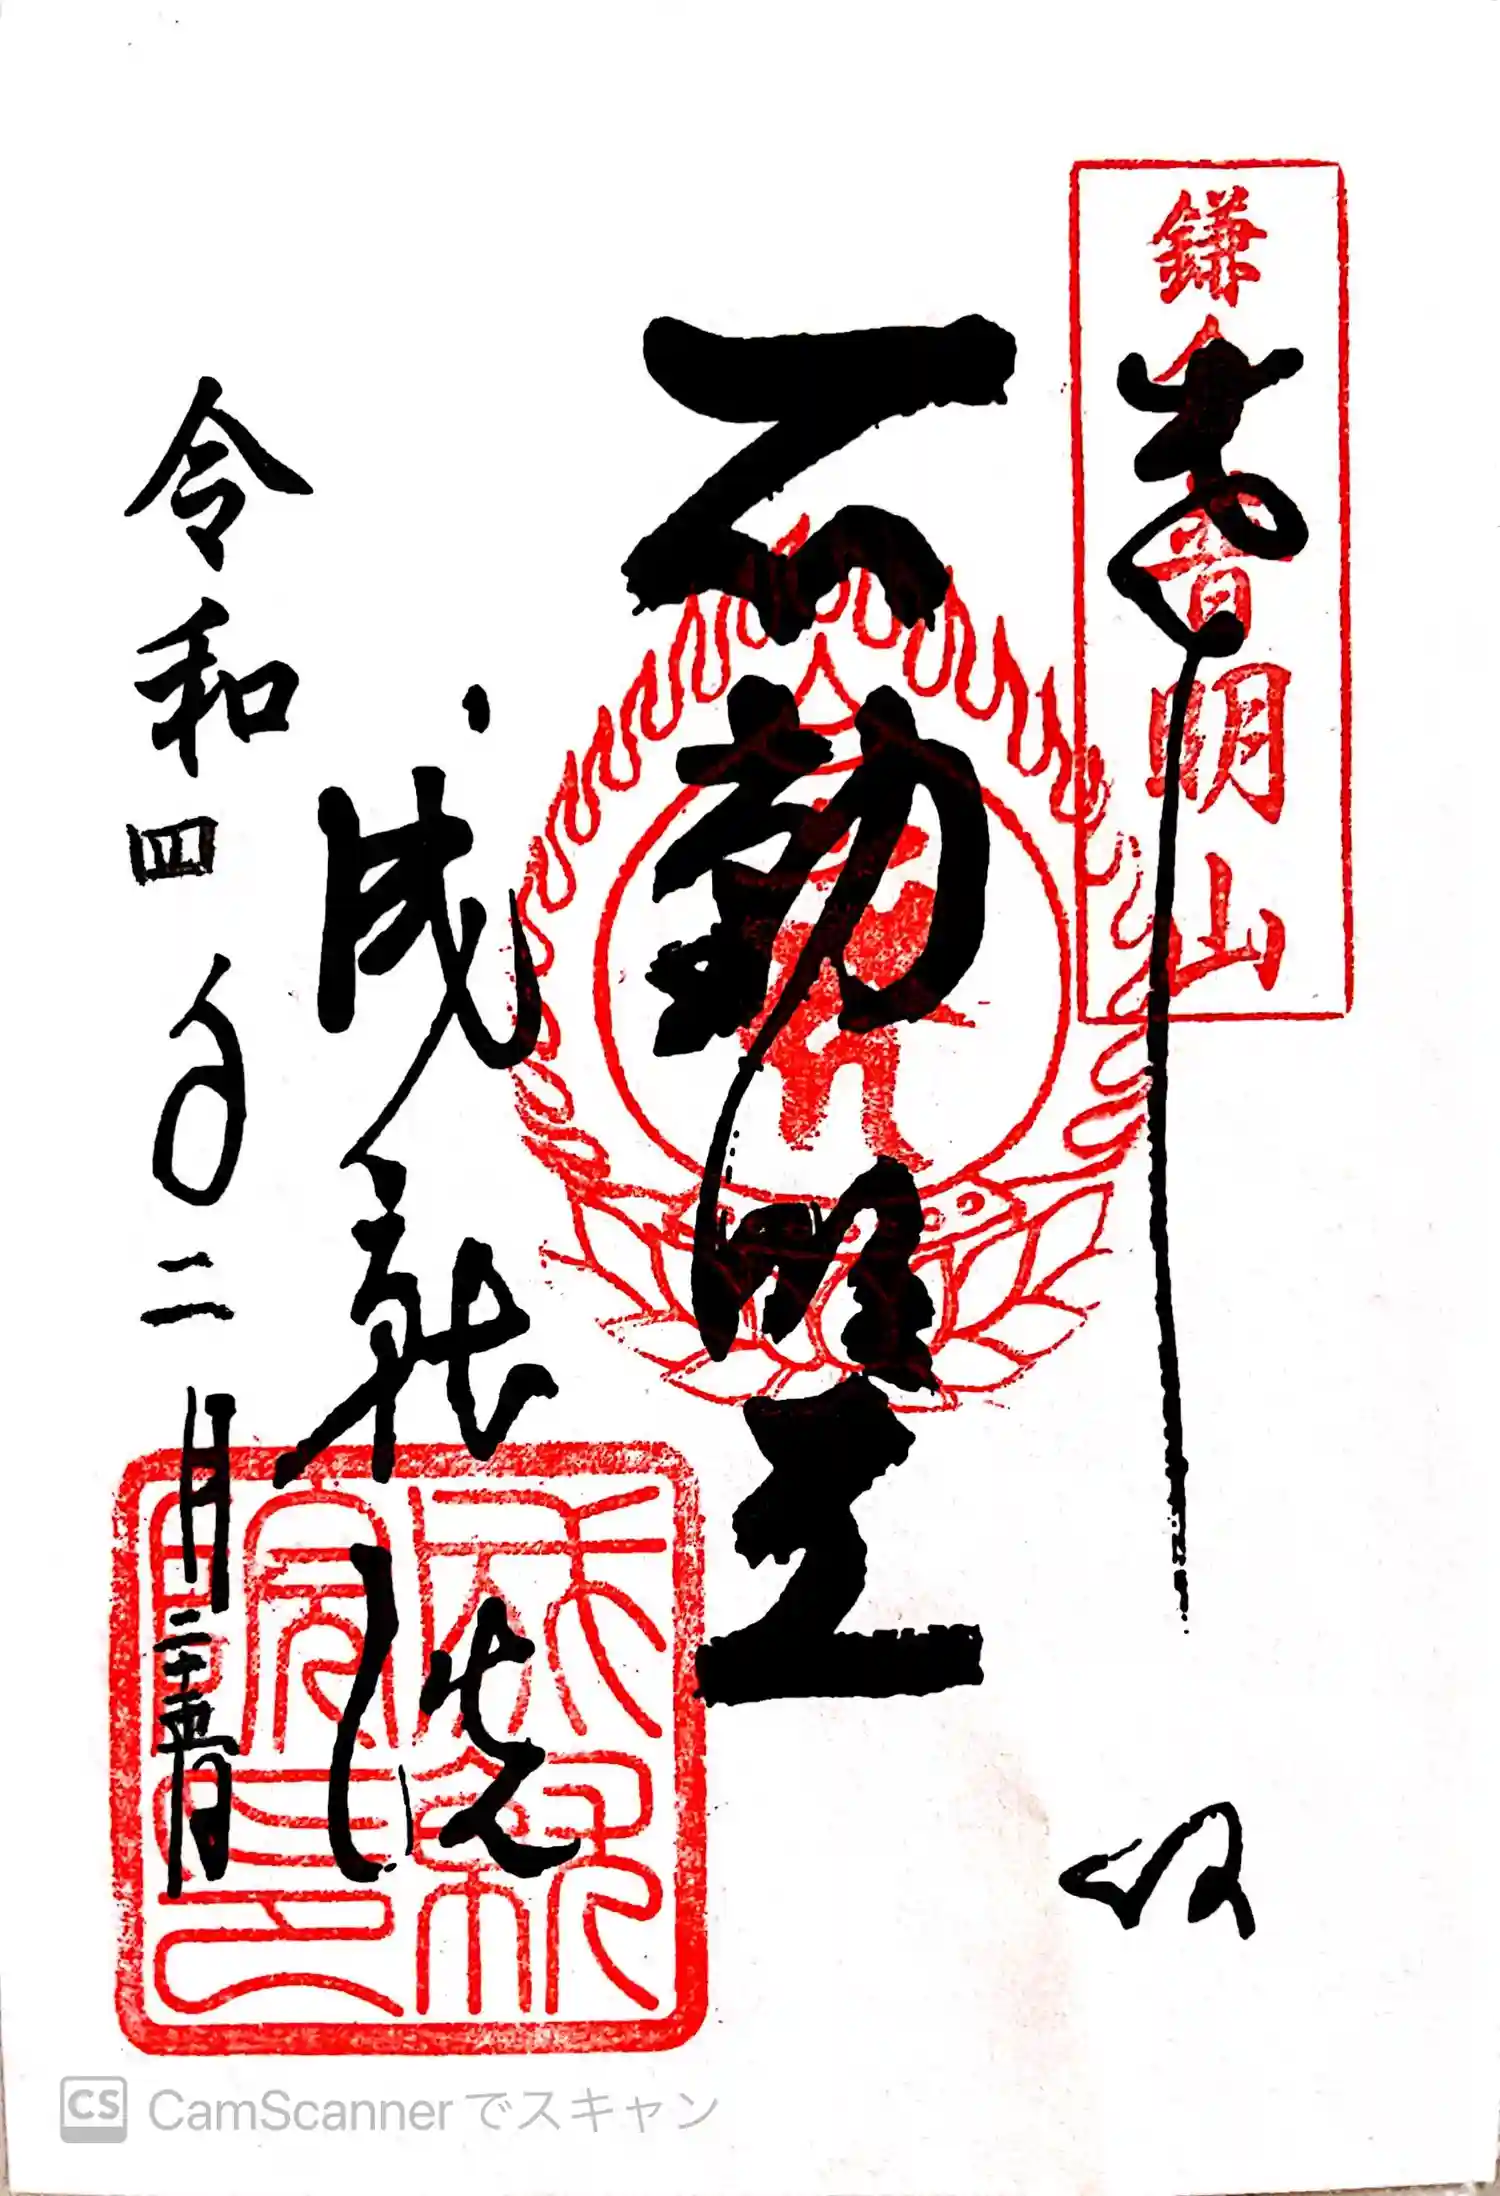 鎌倉普明山
奉拝
不動明王
成就院
令和四年二月二十五日
CamScannerでスキャン